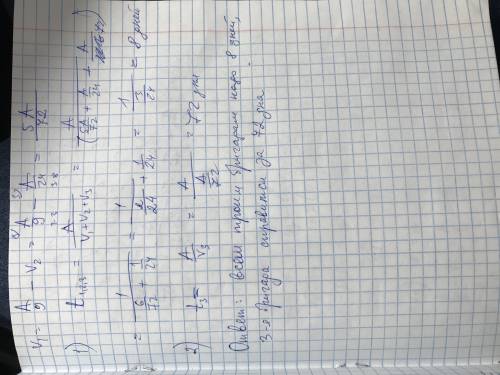 V₁ = A/9 − V₂ = A/9 − A/24 = 5A/72
1) t₁,₂,₃ = A/(V₁+V₂+V₃) = A/(5A/72 + A/24 + A/72)
= 1/(6/72 + 1/24) = 1/(2/24 + 1/24) = 1/(3/24) = 8 дней
2) t₃ = A/V₃ = A/(A/72) = 72 дня
Ответ: всем троим бригадам надо 8 дней,
3-я бригада справится за 72 дня.